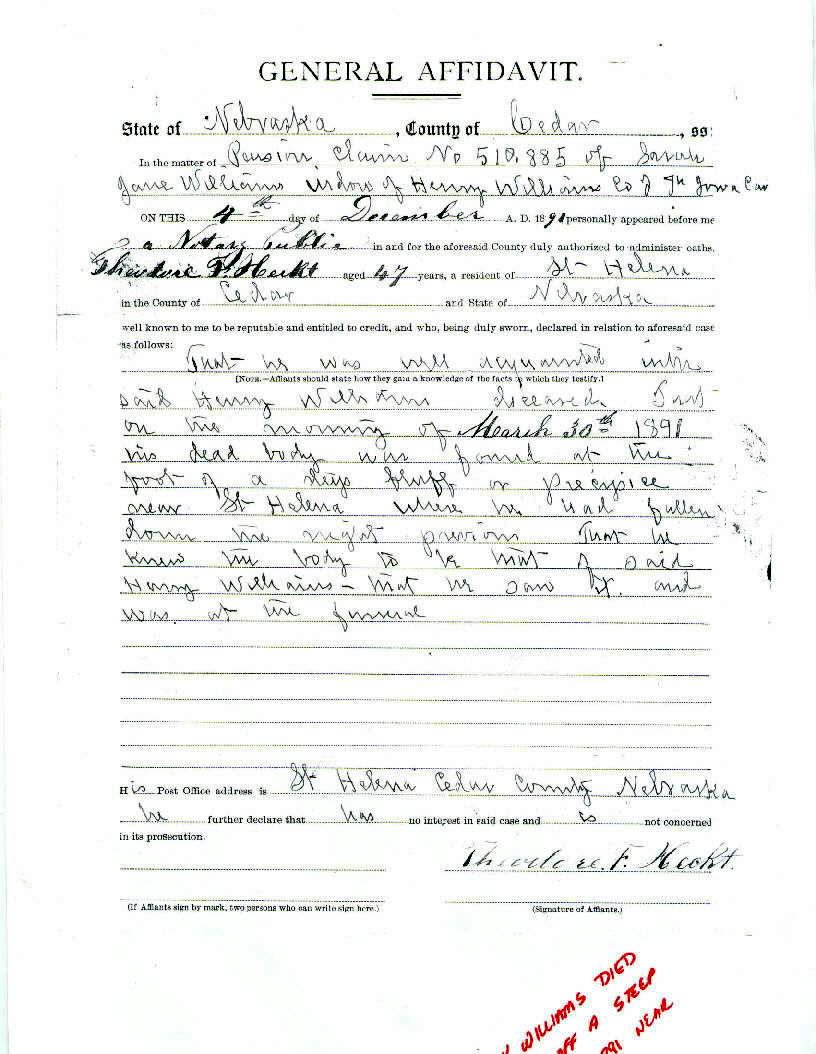 GENERAL AFFIDAVIT.
State of Nebraska, County of Cedar, ss:
In the matter of Pension Claim No 510.885 of Sarah
Jane Williams widow of Henry Williams Co I 7th Iowa Cav
ON THIS 4th day of December A. D. 1891 personally appeared before me
a Notary Public in and for the aforesaid County duly authorized to administer oaths.
Theodore F. Heckt aged 47 years, a resident of St Helena
in the County of Cedar and State of Nebraska
well known to me to be reputable and entitled to credit, and who, being duly sworn, declared in relation to aforesaid case
as follows:
That he was well acquainted with
[NOTE.—Affiants should state how they gain a knowledge of the facts to which they testify.]
said Henry Williams deceased. That
on the morning of March 30th 1891
his dead body was found at the
foot of a steep bluff or precipice
near St Helena where he had fallen
down the night previous That he
knew the body to be that of said
Henry Williams – that he saw it. and
was at the funeral
His Post Office address is St Helena Cedar County Nebraska
he further declare that has no interest in said case and is not concerned
in its prosecution.
Theodore. F. Heckt.
(If Affiants sign by mark, two persons who can write sign here.)
(Signature of Affiants.)
WILLIAMS DIED
OFF A STEEP
NEAR